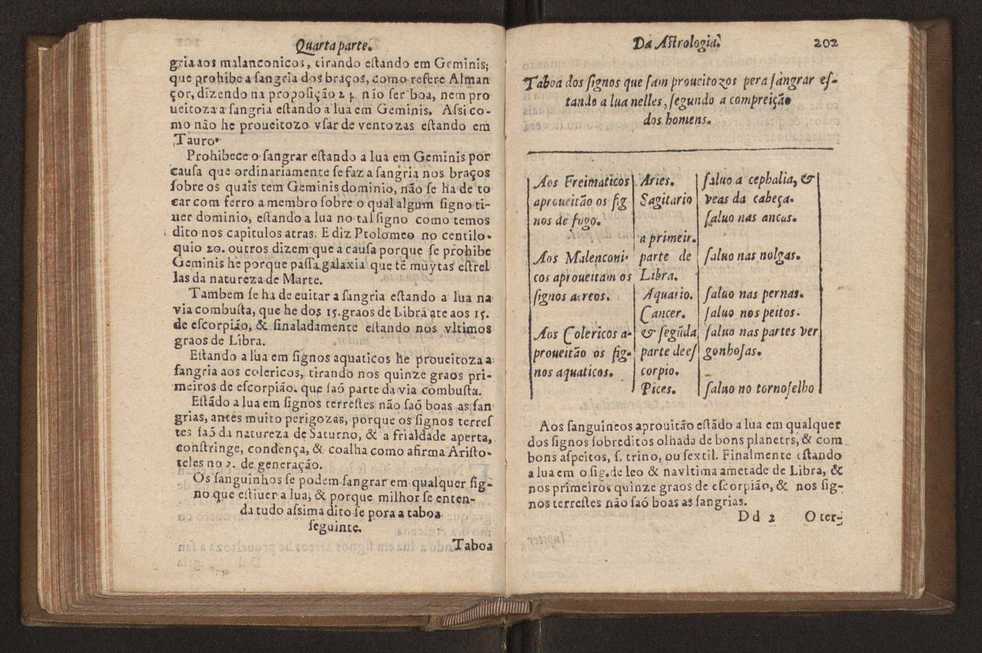 Quarta parte.
gria aos malanconicos, tirando estando em Geminis;
que prohibe a sangria dos braços, como refere Alman
çor, dizendo na proposição 2 não ser boa, nem pro
ueitoza a sangria estando a lua em Geminis. Assi co-
mo não he proueitozo vsar de ventozas estando em
Tauro.
Prohibece o sangrar estando a lua em Geminis por
causa que ordinariamente se faz a sangria nos braços
sobre os quais tem Geminis dominio, não se ha de to
car com ferro a membro sobre o qual algum signo ti-
uer dominio, estando a lua no tal signo como temos
dito nos capitulos atras. E diz Ptolomeo no centilo-
quio 20. outros dizem que a causa porque se prohibe
Geminis he porque passa galaxia que tẽ muytas estrel
las da natureza de Marte.
Tambem se ha de euitar a sangria estando a lua na
via combusta, que he dos 15. graos de Libra ate aos 15.
de escorpião, & sinaladamente estando nos vltimos
graos de Libra.
Estando a lua em signos aquaticos he proueitoza a
sangria aos colericos, tirando nos quinze graos pri-
meiros de escorpião. que saõ parte da via combusta.
Estãdo a lua em signos terrestes não saõ boas as san
grias, antes muito perigozas, porque os signos terres
tes saõ da natureza de Saturno, & a frialdade aperta,
constringe, condença, & coalha como afirma Aristo-
teles no 2. de generação.
Os sanguinhos se podem sangrar em qualquer sig-
no que estiuer a lua, & porque milhor se enten-
da tudo assima dito se pora a taboa
seguinte.
Taboa
Da Astrologia. 202
Taboa dos signos que sam proueitozos pera sangrar es-
tando a lua nelles, segundo a compreição
dos homens.
Aos Freimaticos Aries. saluo a cephalia, &
aproueitão os sig Sagitario veas da cabeça.
nos de fogo. saluo nas ancas.
a primeir.
Aos Malenconi- parte de saluo nas nolgas.
cos aproueitam os Libra.
signos aereos. Aquario. saluo nas pernas.
Cancer. saluo nos peitos.
Aos Colericos a- & segũda saluo nas partes ver
proueitão os sig- parte de es gonhosas.
nos aquaticos. corpio.
Pices. saluo no tornoselho
Aos sanguineos aprouitão estãdo a lua em qualquer
dos signos sobreditos olhada de bons planetrs, & com
bons aspeitos, s. trino, ou sextil. Finalmente estando
a lua em o sig. de leo & na vltima ametade de Libra, &
nos primeiros quinze graos de escorpião, & nos sig-
nos terrestes não saõ boas as sangrias.
Dd 2 O ter-